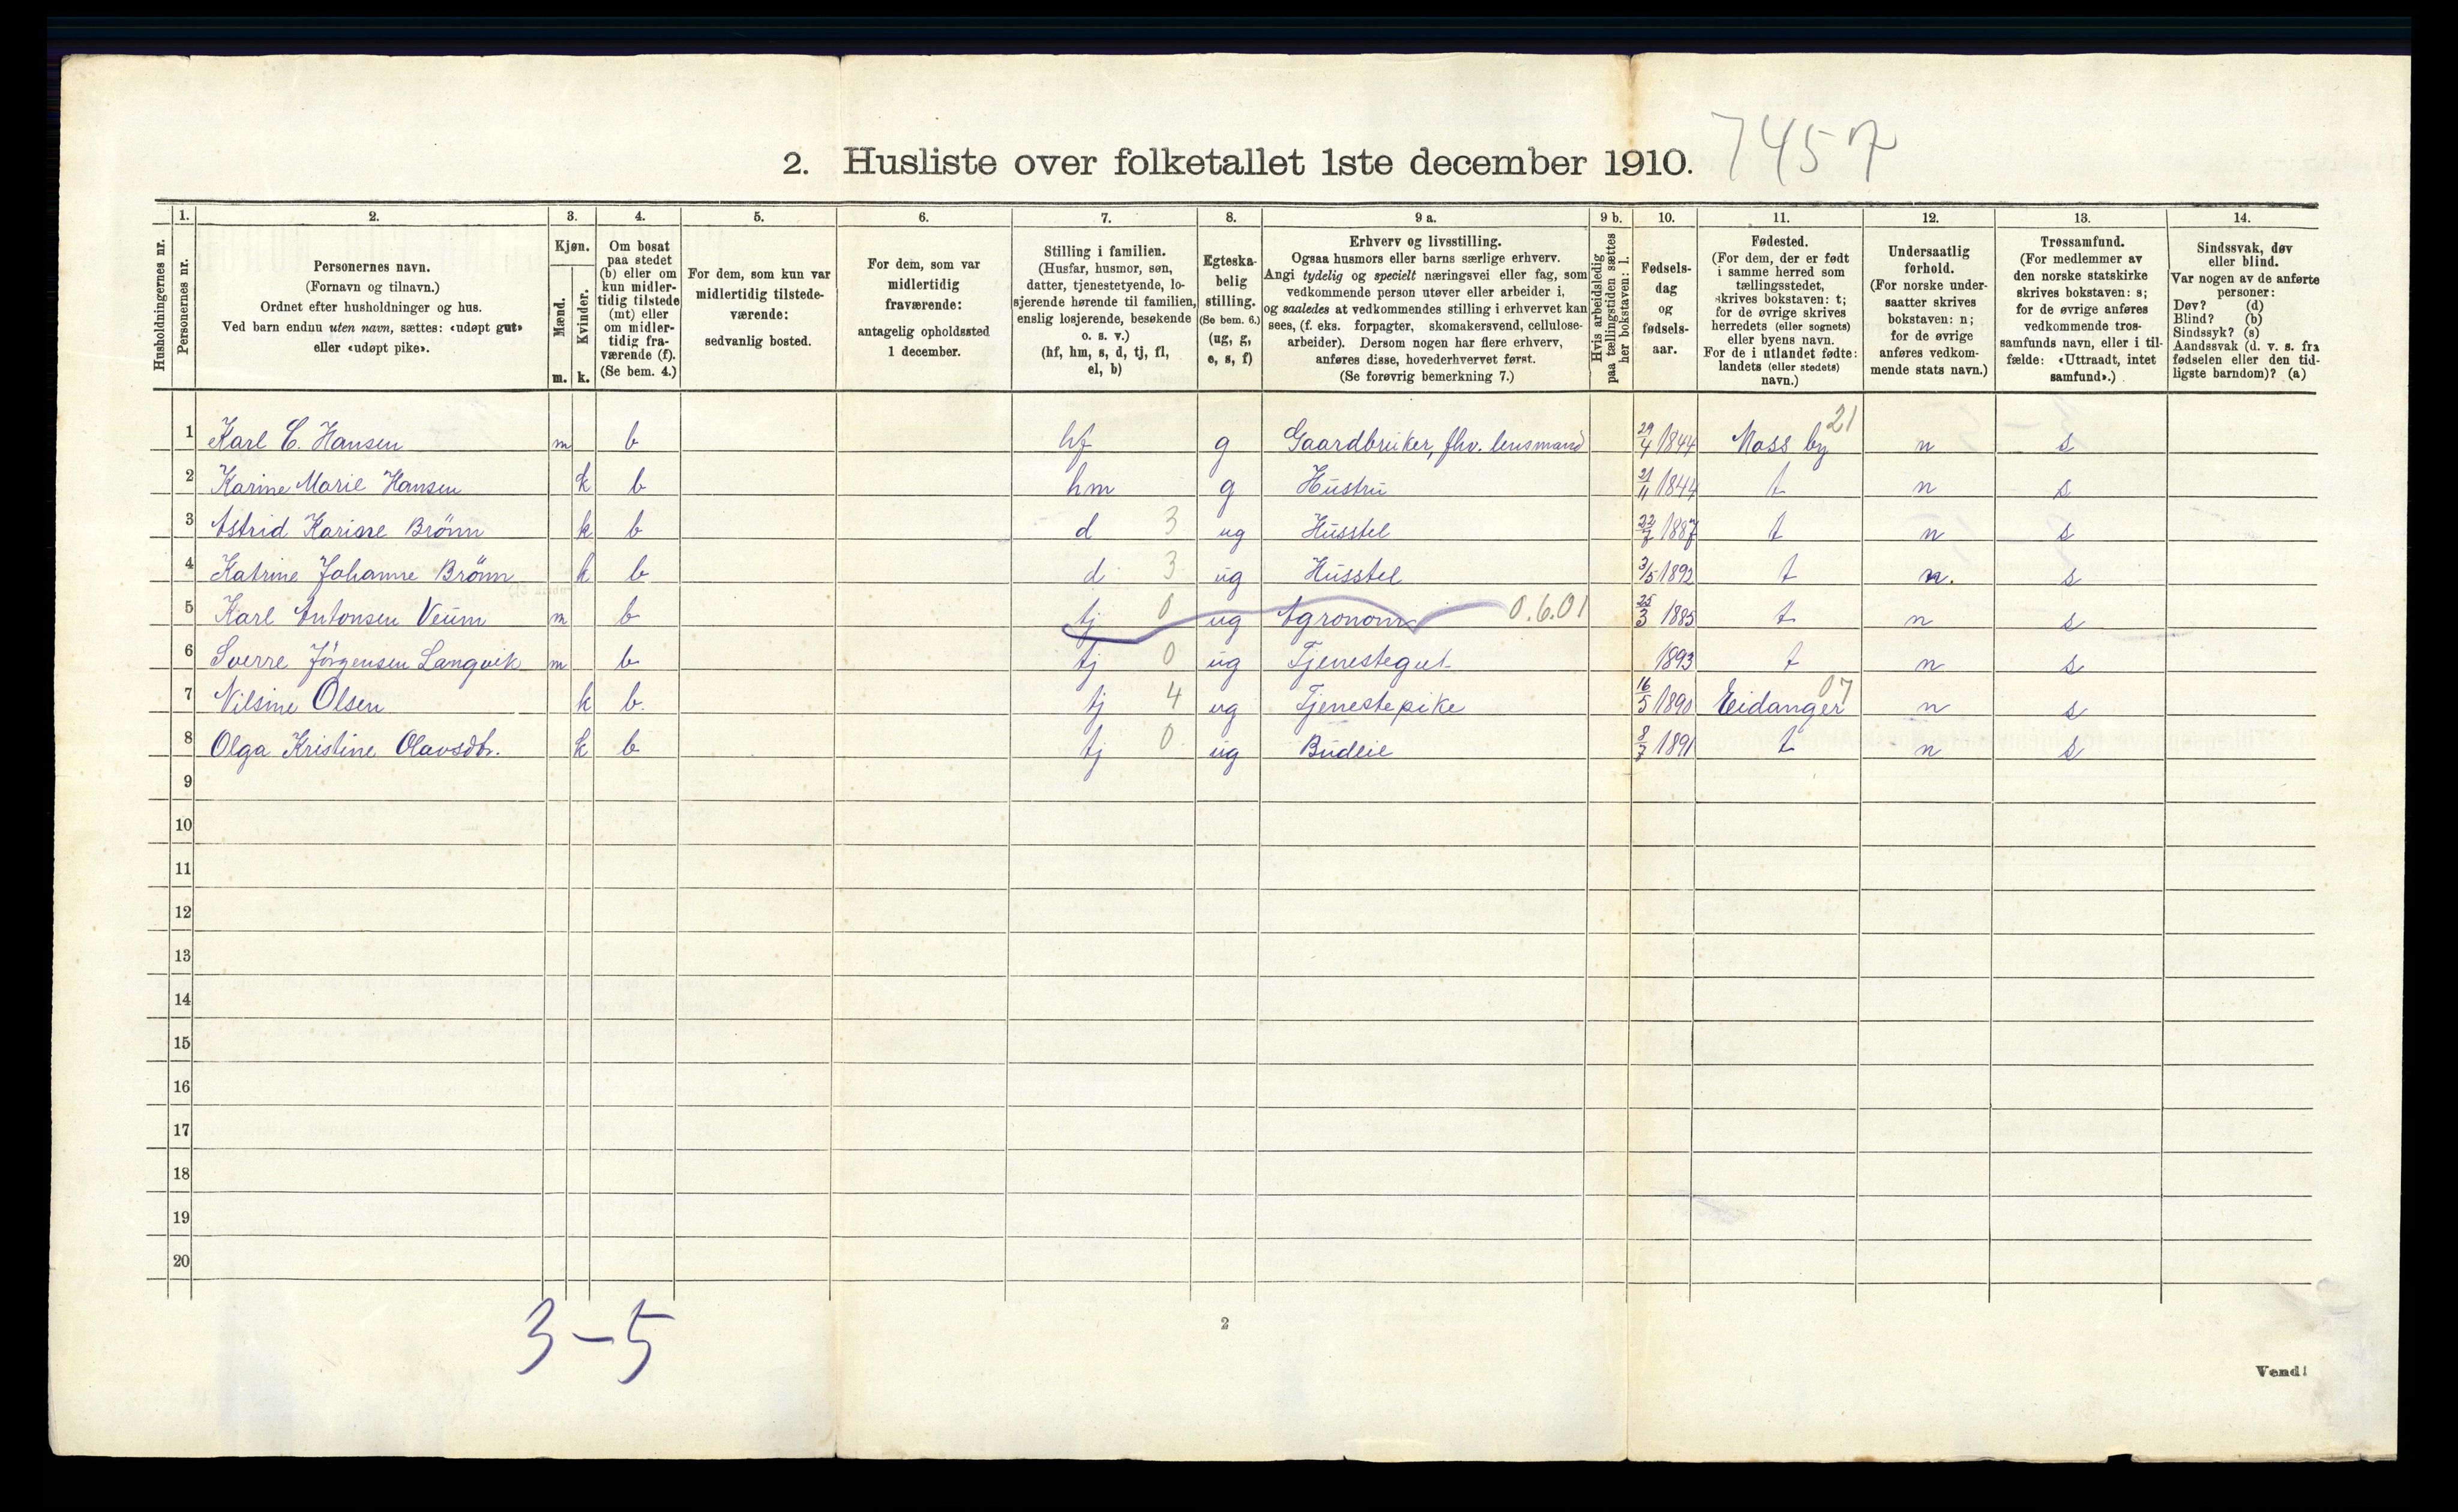 2. Husliste over folketallet 1ste december 1910. 7457
1. 2. 3. 4. 5. 6. 7. 8. 9 a. 9 b. 10. 11. 12. 13. 14.
Husholdningernes nr.
Personernes nr.
Personernes navn.
(Fornavn og tilnavn.)
Ordnet efter husholdninger og hus.
Ved barn endnu uten navn, sættes: «udøpt gut»
eller «udøpt pike».
Kjøn.
Mænd.
Kvinder.
m. k.
Om bosat
paa stedet
(b) eller om
kun midler-
tidig tilstede
(mt) eller
om midler-
tidig fra-
værende (f).
(Se bem. 4.)
For dem, som kun var
midlertidig tilstede-
værende:
sedvanlig bosted.
For dem, som var
midlertidig
fraværende:
antagelig opholdssted
1 december.
Stilling i familien.
(Husfar, husmor, søn,
datter, tjenestetyende, lo-
sjerende hørende til familien,
enslig losjerende, besøkende
o. s. v.)
(hf, hm, s, d, tj, fl,
el, b)
Egteska-
belig
stilling.
(Se bem. 6.)
(ug, g,
e, s, f)
Erhverv og livsstilling.
Ogsaa husmors eller barns særlige erhverv.
Angi tydelig og specielt næringsvei eller fag, som
vedkommende person utøver eller arbeider i,
og saaledes at vedkommendes stilling i erhvervet kan
sees, (f. eks. forpagter, skomakersvend, cellulose-
arbeider). Dersom nogen har flere erhverv,
anføres disse, hovederhvervet først.
(Se forøvrig bemerkning 7.)
Hvis arbeidsledig
paa tællingstiden sættes
her bokstaven: l.
Fødsels-
dag
og
fødsels-
aar.
Fødested.
(For dem, der er født
i samme herred som
tællingsstedet,
skrives bokstaven: t;
for de øvrige skrives
herredets (eller sognets)
eller byens navn.
For de i utlandet fødte:
landets (eller stedets)
navn.)
Undersaatlig
forhold.
(For norske under-
saatter skrives
bokstaven: n;
for de øvrige
anføres vedkom-
mende stats navn.)
Trossamfund.
(For medlemmer av
den norske statskirke
skrives bokstaven: s;
for de øvrige anføres
vedkommende tros-
samfunds navn, eller i til-
fælde: «Uttraadt, intet
samfund».)
Sindssvak, døv
eller blind.
Var nogen av de anførte
personer:
Døv? (d)
Blind? (b)
Sindssyk? (s)
Aandssvak (d. v. s. fra
fødselen eller den tid-
ligste barndom)? (a)
1 Karl C. Hansen m b hf g Gaardbruker, fhv. lensmand 29/4 1844 Moss by 21 n s
2 Karine Marie Hansen k b hm g Hustru 21/11 1844 t n s
3 Astrid Karine Brönn k b d 3 ug Husstel 22/7 1887 t n s
4 Katrine Johanne Brönn k b d 3 ug Husstel 3/5 1892 t n. s
5 Karl Antonsen Veum m b tj 0 ug Agronom 0.6.01 25/3 1885 t n s
6 Sverre Jörgensen Langvik m b tj 0 ug Tjenestegut 1893 t n s
7 Nilsine Olsen k b. tj 4 ug Tjenestepike 16/5 1890 Eidanger 07 n s
8 Olga Kristine Olavsdtr. k b tj 0 ug Budeie 8/7 1891 t n s
9
10
11
12
13
14
15
16
17
18
19
20
3-5
2
Vend!